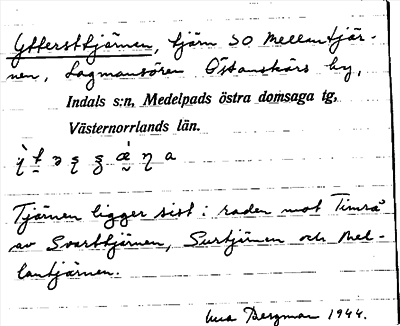 Yttersttjärnen, tjärn SO Mellantjär-
nen, Lagmansören Östanskärs by,
Indals s:n, Medelpads östra domsaga tg,
Västernorrlands län.
Tjärnen ligger sist i raden mot Timrå
av Svarttjärnen, Surtjärnen och Mel-
lantjärnen.
Bergman 1944.